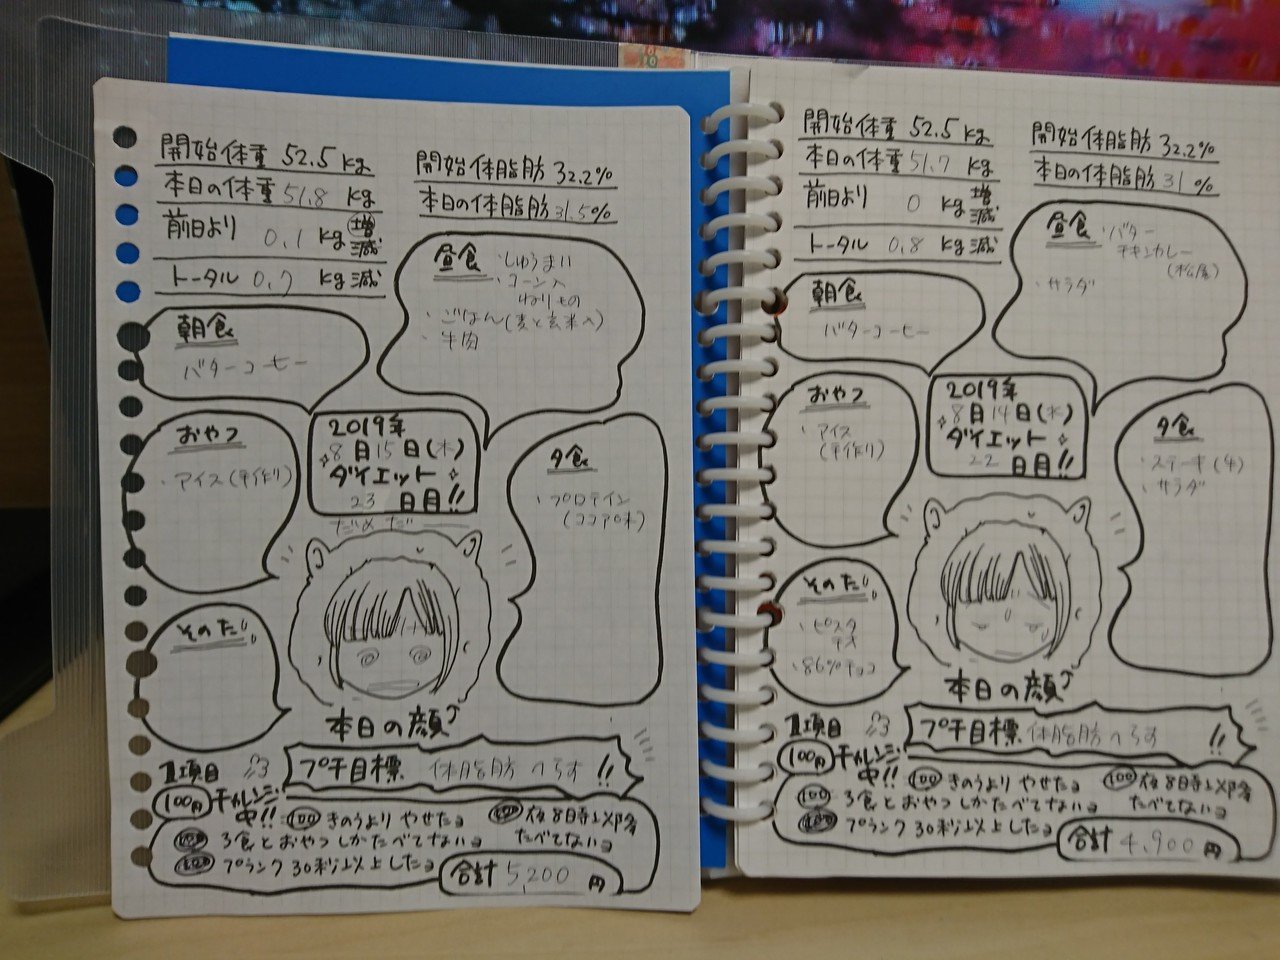 開始体重 52.5 kg
本日の体重 51.8 kg
前日より 0.1 kg 増 減
トータル 0.7 kg 減
開始体脂肪 32.2%
本日の体脂肪 31.5%
朝食
バターコーヒー
昼食
・しゅうまい
・コーン入
ねりもの
・ごはん(麦と玄米入)
・牛肉
おやつ
・アイス(手作り)
2019年
8月15日(木)
ダイエット
23日目!!
だめだ
夕食
・プロテイン
(ココア味)
そのた
本日の顔
プチ目標 体脂肪へらす!!
1項目
100円チャレンジ中!!
100 きのうよりやせたョ
100 夜8時以降たべてないョ
100 3食とおやつしかたべてないョ
100 プランク30秒以上したョ
合計 5,200 円
開始体重 52.5 kg
本日の体重 51.7 kg
前日より 0 kg 増 減
トータル 0.8 kg 減
開始体脂肪 32.2%
本日の体脂肪 31%
朝食
バターコーヒー
昼食
・バター
チキンカレー
(松屋)
・サラダ
おやつ
・アイス
(手作り)
2019年
8月14日(水)
ダイエット
22日目!!
夕食
・ステーキ(牛)
・サラダ
そのた
・ピスタ
チオ
・86%チョコ
本日の顔
プチ目標 体脂肪へらす!!
1項目
100円チャレンジ中!!
100 きのうよりやせたョ
100 夜8時以降たべてないョ
100 3食とおやつしかたべてないョ
100 プランク30秒以上したョ
合計 4,900 円